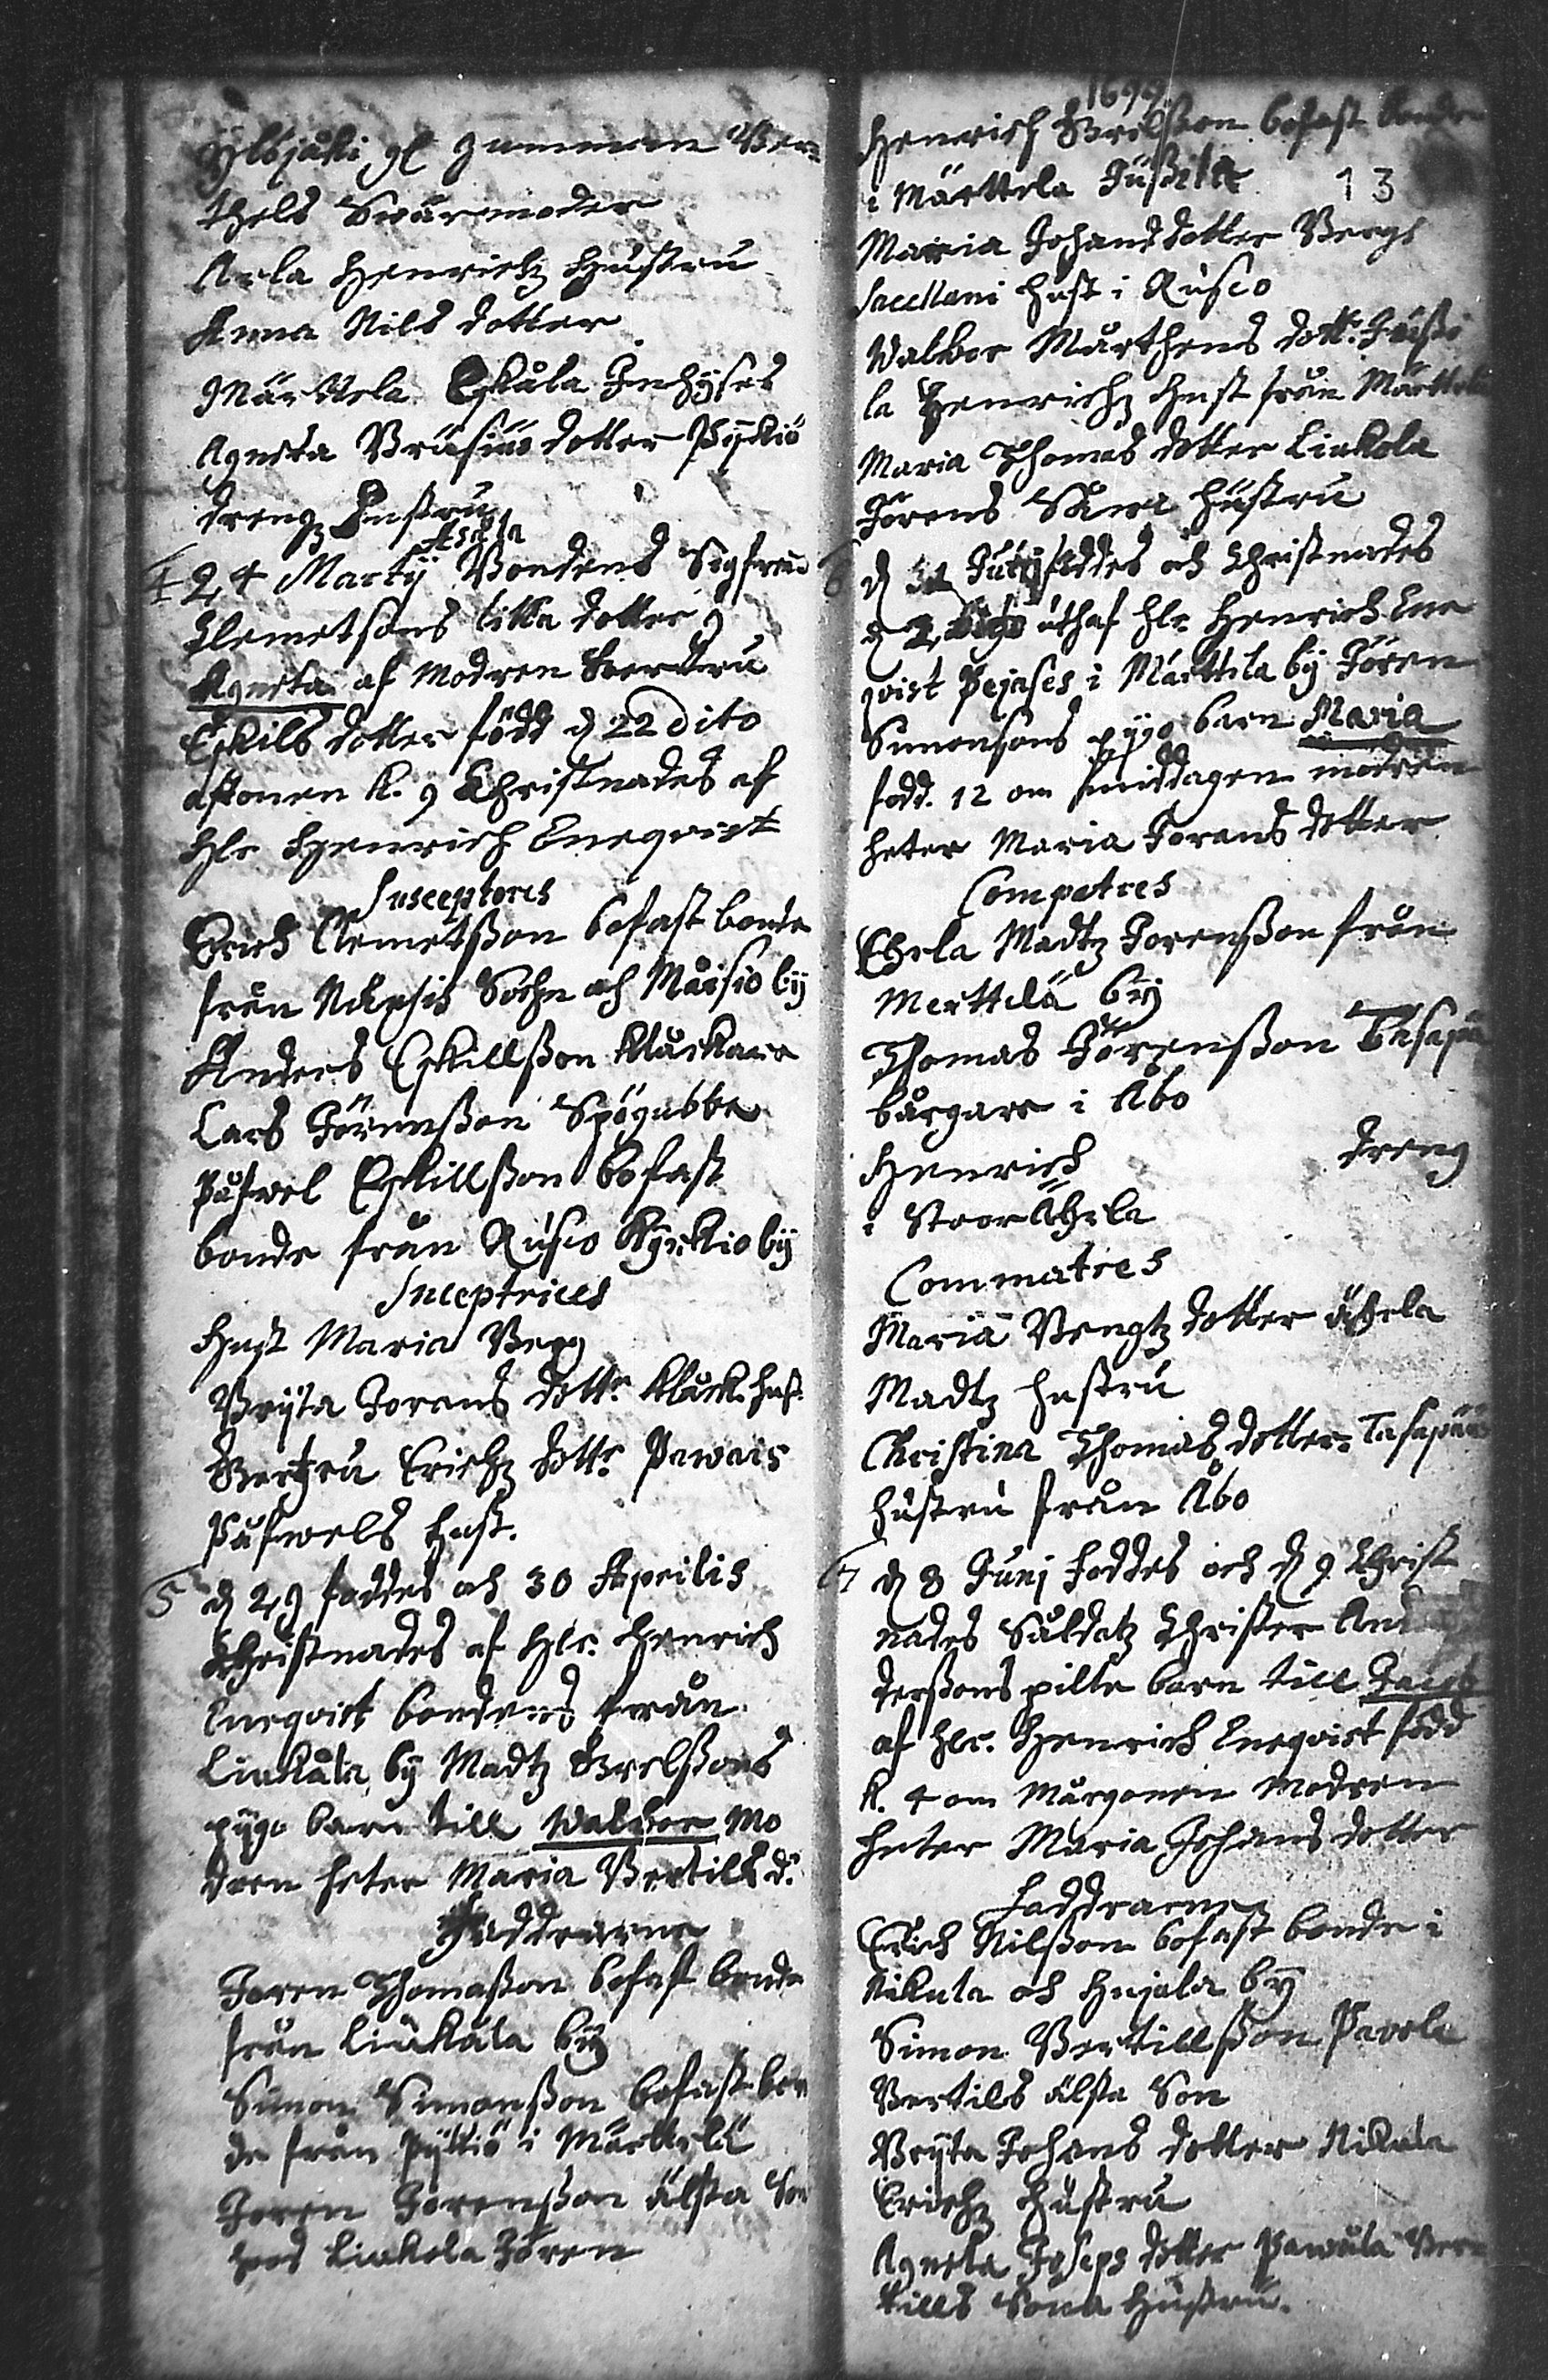 Ylösjåki gl gumman Ber
thels Swärmoder
Arla Henrichz Hustru
Anna Nils dotter
Märttela Eskåla Inhyses
Agneta Bräsius dotter Pyhkiö
drengz Hustru
Askala
4 24 Martij Bondens Sigfred
Clemetsons litla dotter
Agneta af modren Gertru
Eskils dotter född d 22 dito
aftonen k. 9 Christnades af
Hlr Henrich Eneqvist
Susceptores
Erich Clemetsson bofast bonde
från Nousis Sochn och Måisio by
Anders Eskillsson Kluckare
Lars Jörensson Spögubbe
Påfwel Eskillsson bofast
bonde från Rusco Kyrkio by
Suceptrices
Hust Maria Berg
Bryta Jorans dottr Kluck. hust.
Gertru Erichz dottr Pawais
Påfwels Hust.
5 d 29 foddes och 30 Aprilis
Christnades af Hlr. Henrich
Eneqvist bondens från
Liukåla by Madtz Grelssons
pygo barn till Walbor Mo
dren heter Maria Bertils d:
Faddrarne
Joren Thomasson bofast bonde
från Liukåla by
Simon Simonsson bofast bon
de från Pyttiö i Märttelä
Joren Jorensson älsta Son
hoos Liukola Jören
1699
Henrich Grelsson bofast bonde
i Märttela Jussila
13
Maria Johans dotter Bergs
Sacellani hust i Rusco
Walbor Mårthens dottr Jussi
la Henrichz Hust från Märttela
Maria Thomas dotter Liukola
Jörens Hustru
6 d 31 foddes och Christnades
d 2 uthaf Hlr Henrich Ene
qvist Pejases i Märttila by Jören
Simonsons pygo barn Maria
född. 12 om middagen modren
heter Maria Jorans dotter
Compatres
Ehrla Madtz Jorensson från
Merttelä by
Thomas Jörensson Tasapä
bårgare i Åbo
Henrich dreng
i Stoor Ährla
Commatres
Maria Bengtz dotter ährla
Madtz hustru
Christina Thomas dotter Tasapää
hustru från Åbo
7 d 8 Junj foddes och d 9 Christ
nades Såldatz Christer An
derssons pilte barn till Jacob
af Hlr. Henrich Eneqvist född
k. 4 om Mårgonen Modren
heter Maria Johans dotter
Faddrarne
Erich Nilsson bofast bonde i
Nikula och Hujala by
Simon Bertillsson Pavola
Bertils älsta Son
Bryta Johans dotter Nikula
Erichz Hustru
Agneta Joseps dotter Pawåla Ber
tills Sona Hustru.